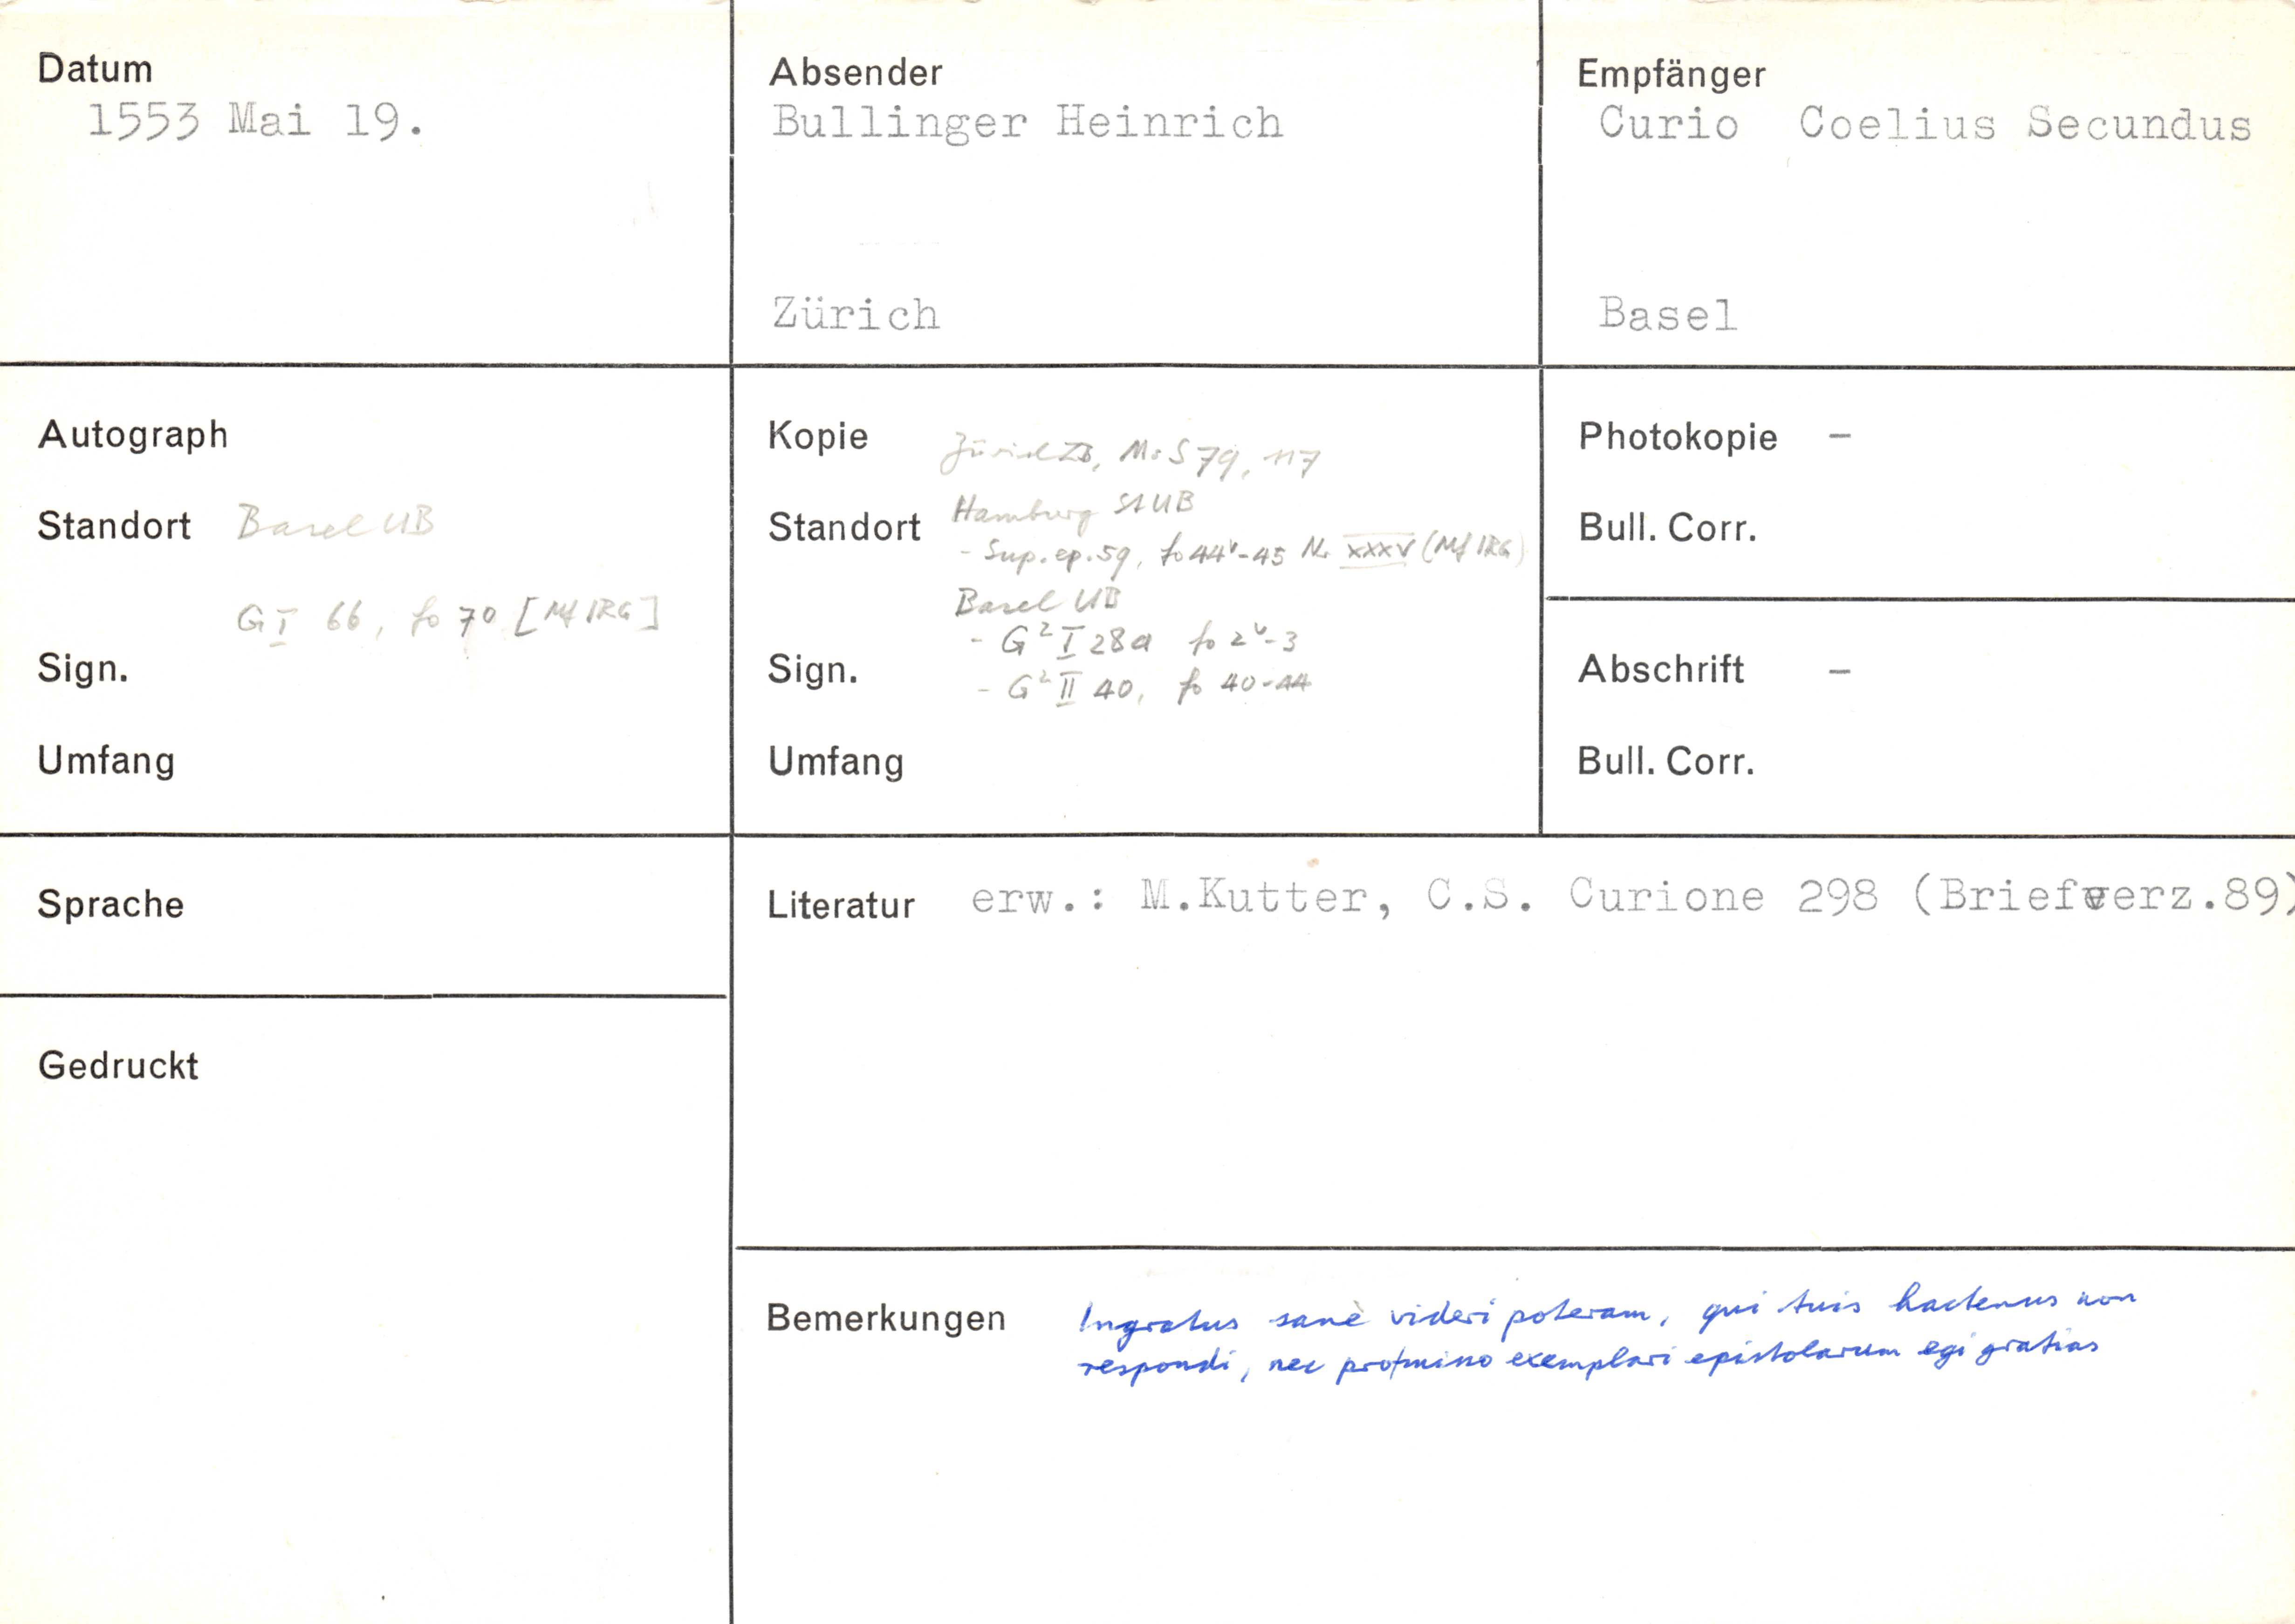 Datum
1553 Mai 19.
Absender
Bullinger Heinrich
Zürich
Empfänger
Curio Coelius Secundus
Basel
Autograph
Standort Basel UB
G I 66, fo 70 [Mf IRG]
Sign.
Umfang
Kopie Zürich ZB, Ms S 79, 117
Standort Hamburg StUB
- Sup. ep. 59, fo 44v-45 Nr XXXV (Mf IRG)
Basel UB
- G² I 28a fo 2v-3
Sign. - G² II 40, fo 40-44
Umfang
Photokopie -
Bull. Corr.
Abschrift -
Bull. Corr.
Sprache
Gedruckt
Literatur erw.: M.Kutter, C.S. Curione 298 (Briefverz.89)
Bemerkungen Ingratus sanè videri poteram, qui tuis hactenus non
respondi, nec pro exemplari epistolarum egi gratias